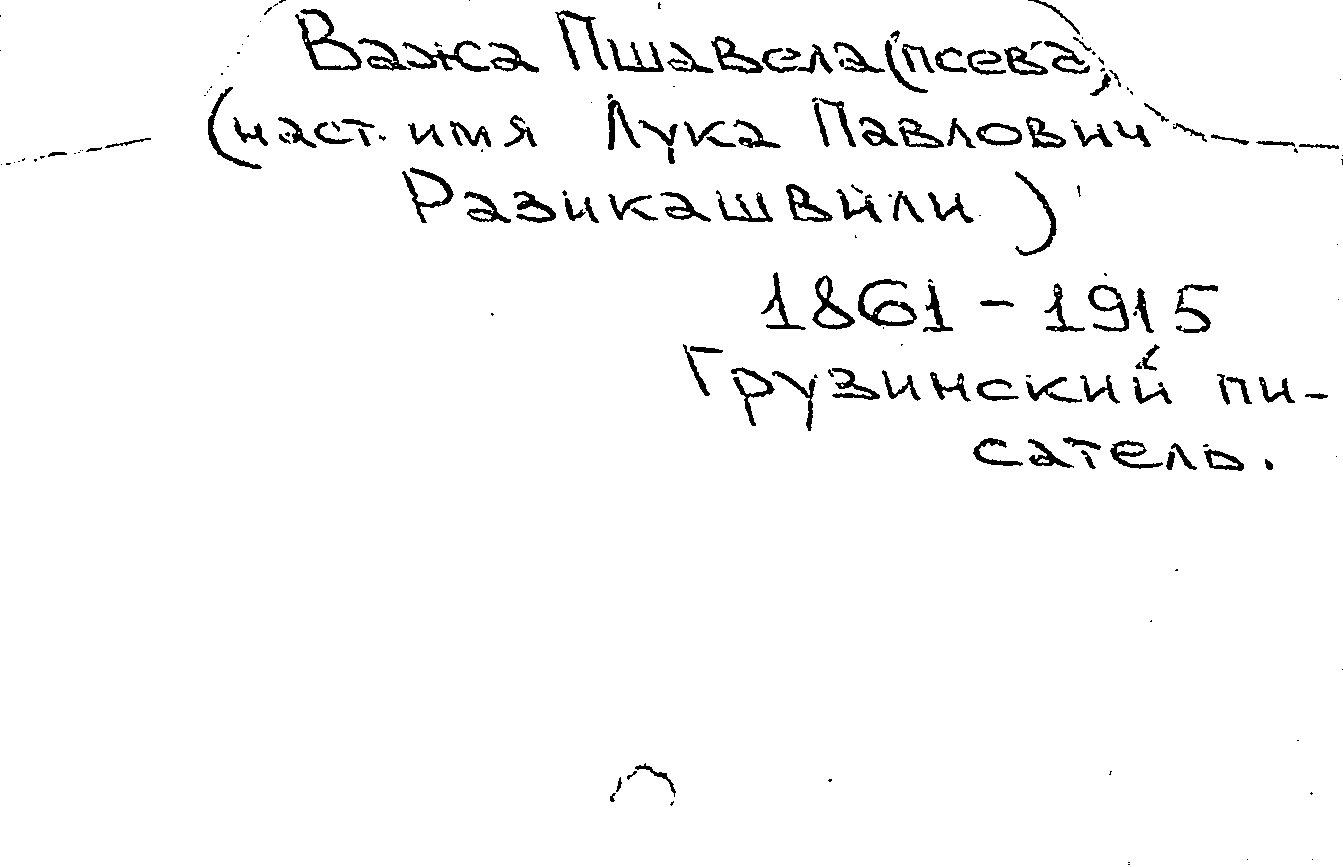 Важа Пшавела (псевд)
(наст. имя Лука Павлович
Разикашвили)
1861 - 1915
Грузинский пи-
сатель.